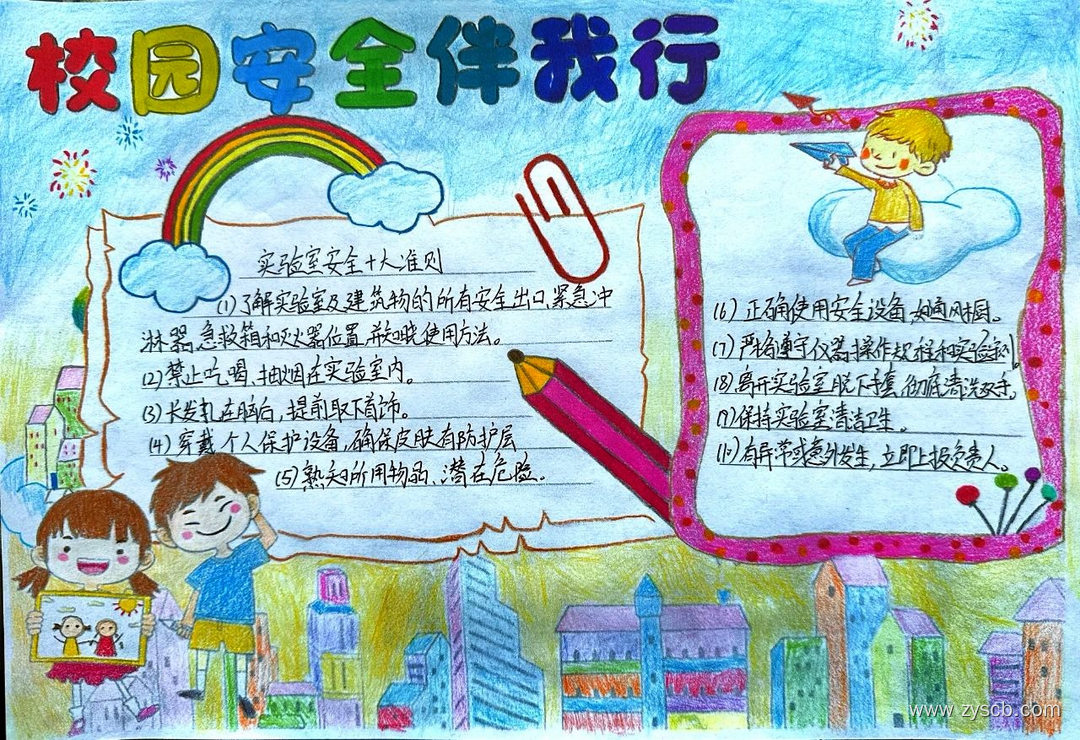 校园安全伴我行
实验室安全十大准则
(1)了解实验室及建筑物的所有安全出口、紧急冲
淋器、急救箱和灭火器位置,并知晓使用方法。
(2)禁止吃喝、抽烟在实验室内。
(3)长发扎在脑后,提前取下首饰。
(4)穿戴个人保护设备,确保皮肤有防护层
(5)熟知所用物品、潜在危险。
(6)正确使用安全设备,如通风橱。
(7)严格遵守仪器操作规程和实验规则。
(8)离开实验室脱下手套,彻底清洗双手。
(9)保持实验室清洁卫生。
(10)有异常或意外发生,立即上报负责人。
www.zyscb.com